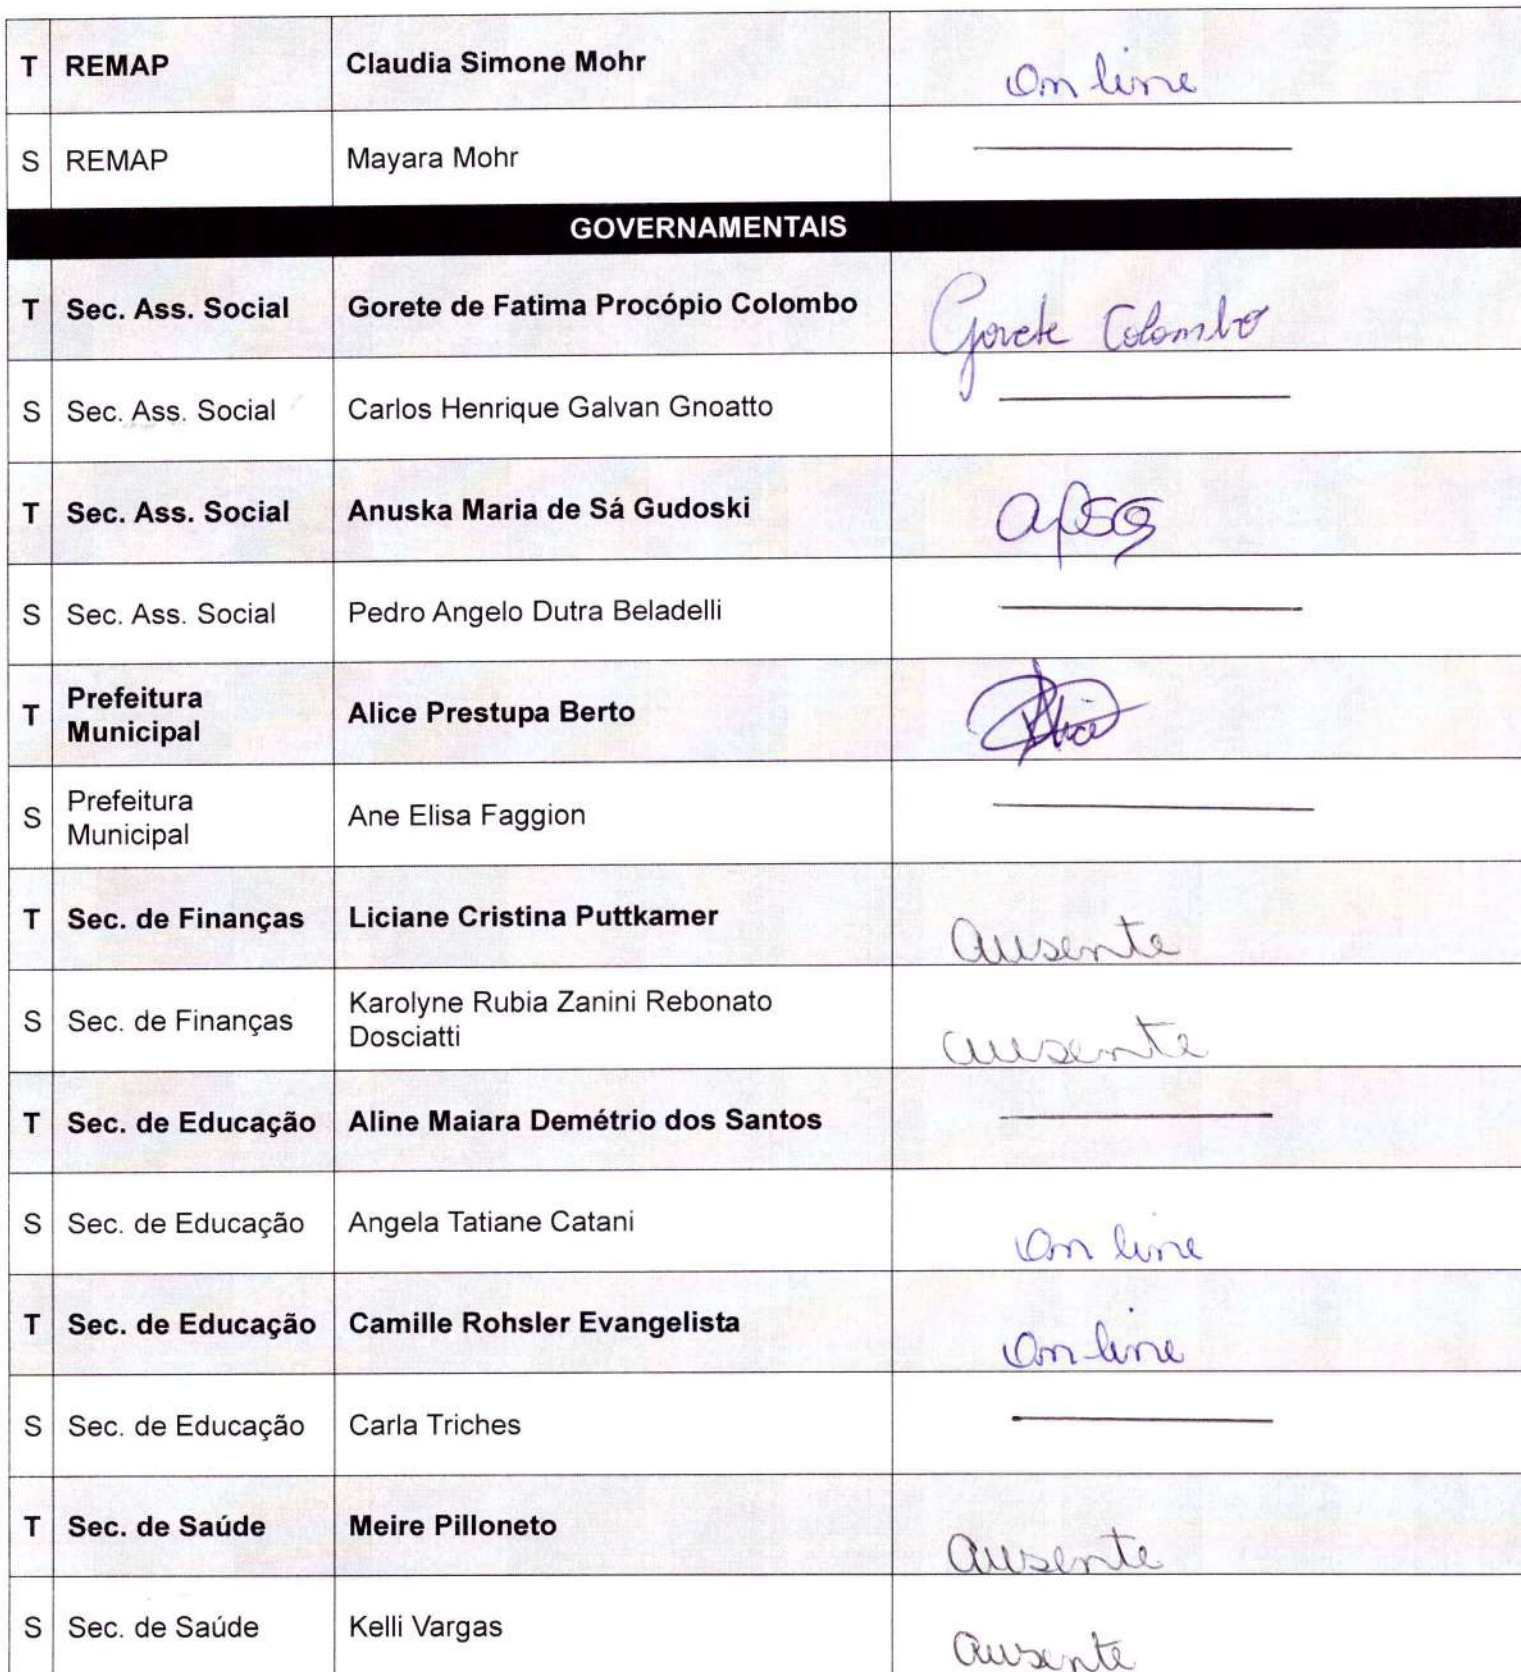 T REMAP Claudia Simone Mohr On line
S REMAP Mayara Mohr
GOVERNAMENTAIS
T Sec. Ass. Social Gorete de Fatima Procópio Colombo Gorete Colombo
S Sec. Ass. Social Carlos Henrique Galvan Gnoatto
T Sec. Ass. Social Anuska Maria de Sá Gudoski
S Sec. Ass. Social Pedro Angelo Dutra Beladelli
T Prefeitura
Municipal Alice Prestupa Berto
S Prefeitura
Municipal Ane Elisa Faggion
T Sec. de Finanças Liciane Cristina Puttkamer Ausente
S Sec. de Finanças Karolyne Rubia Zanini Rebonato
Dosciatti ausente
T Sec. de Educação Aline Maiara Demétrio dos Santos
S Sec. de Educação Angela Tatiane Catani On line
T Sec. de Educação Camille Rohsler Evangelista On line
S Sec. de Educação Carla Triches
T Sec. de Saúde Meire Pilloneto Ausente
S Sec. de Saúde Kelli Vargas Ausente